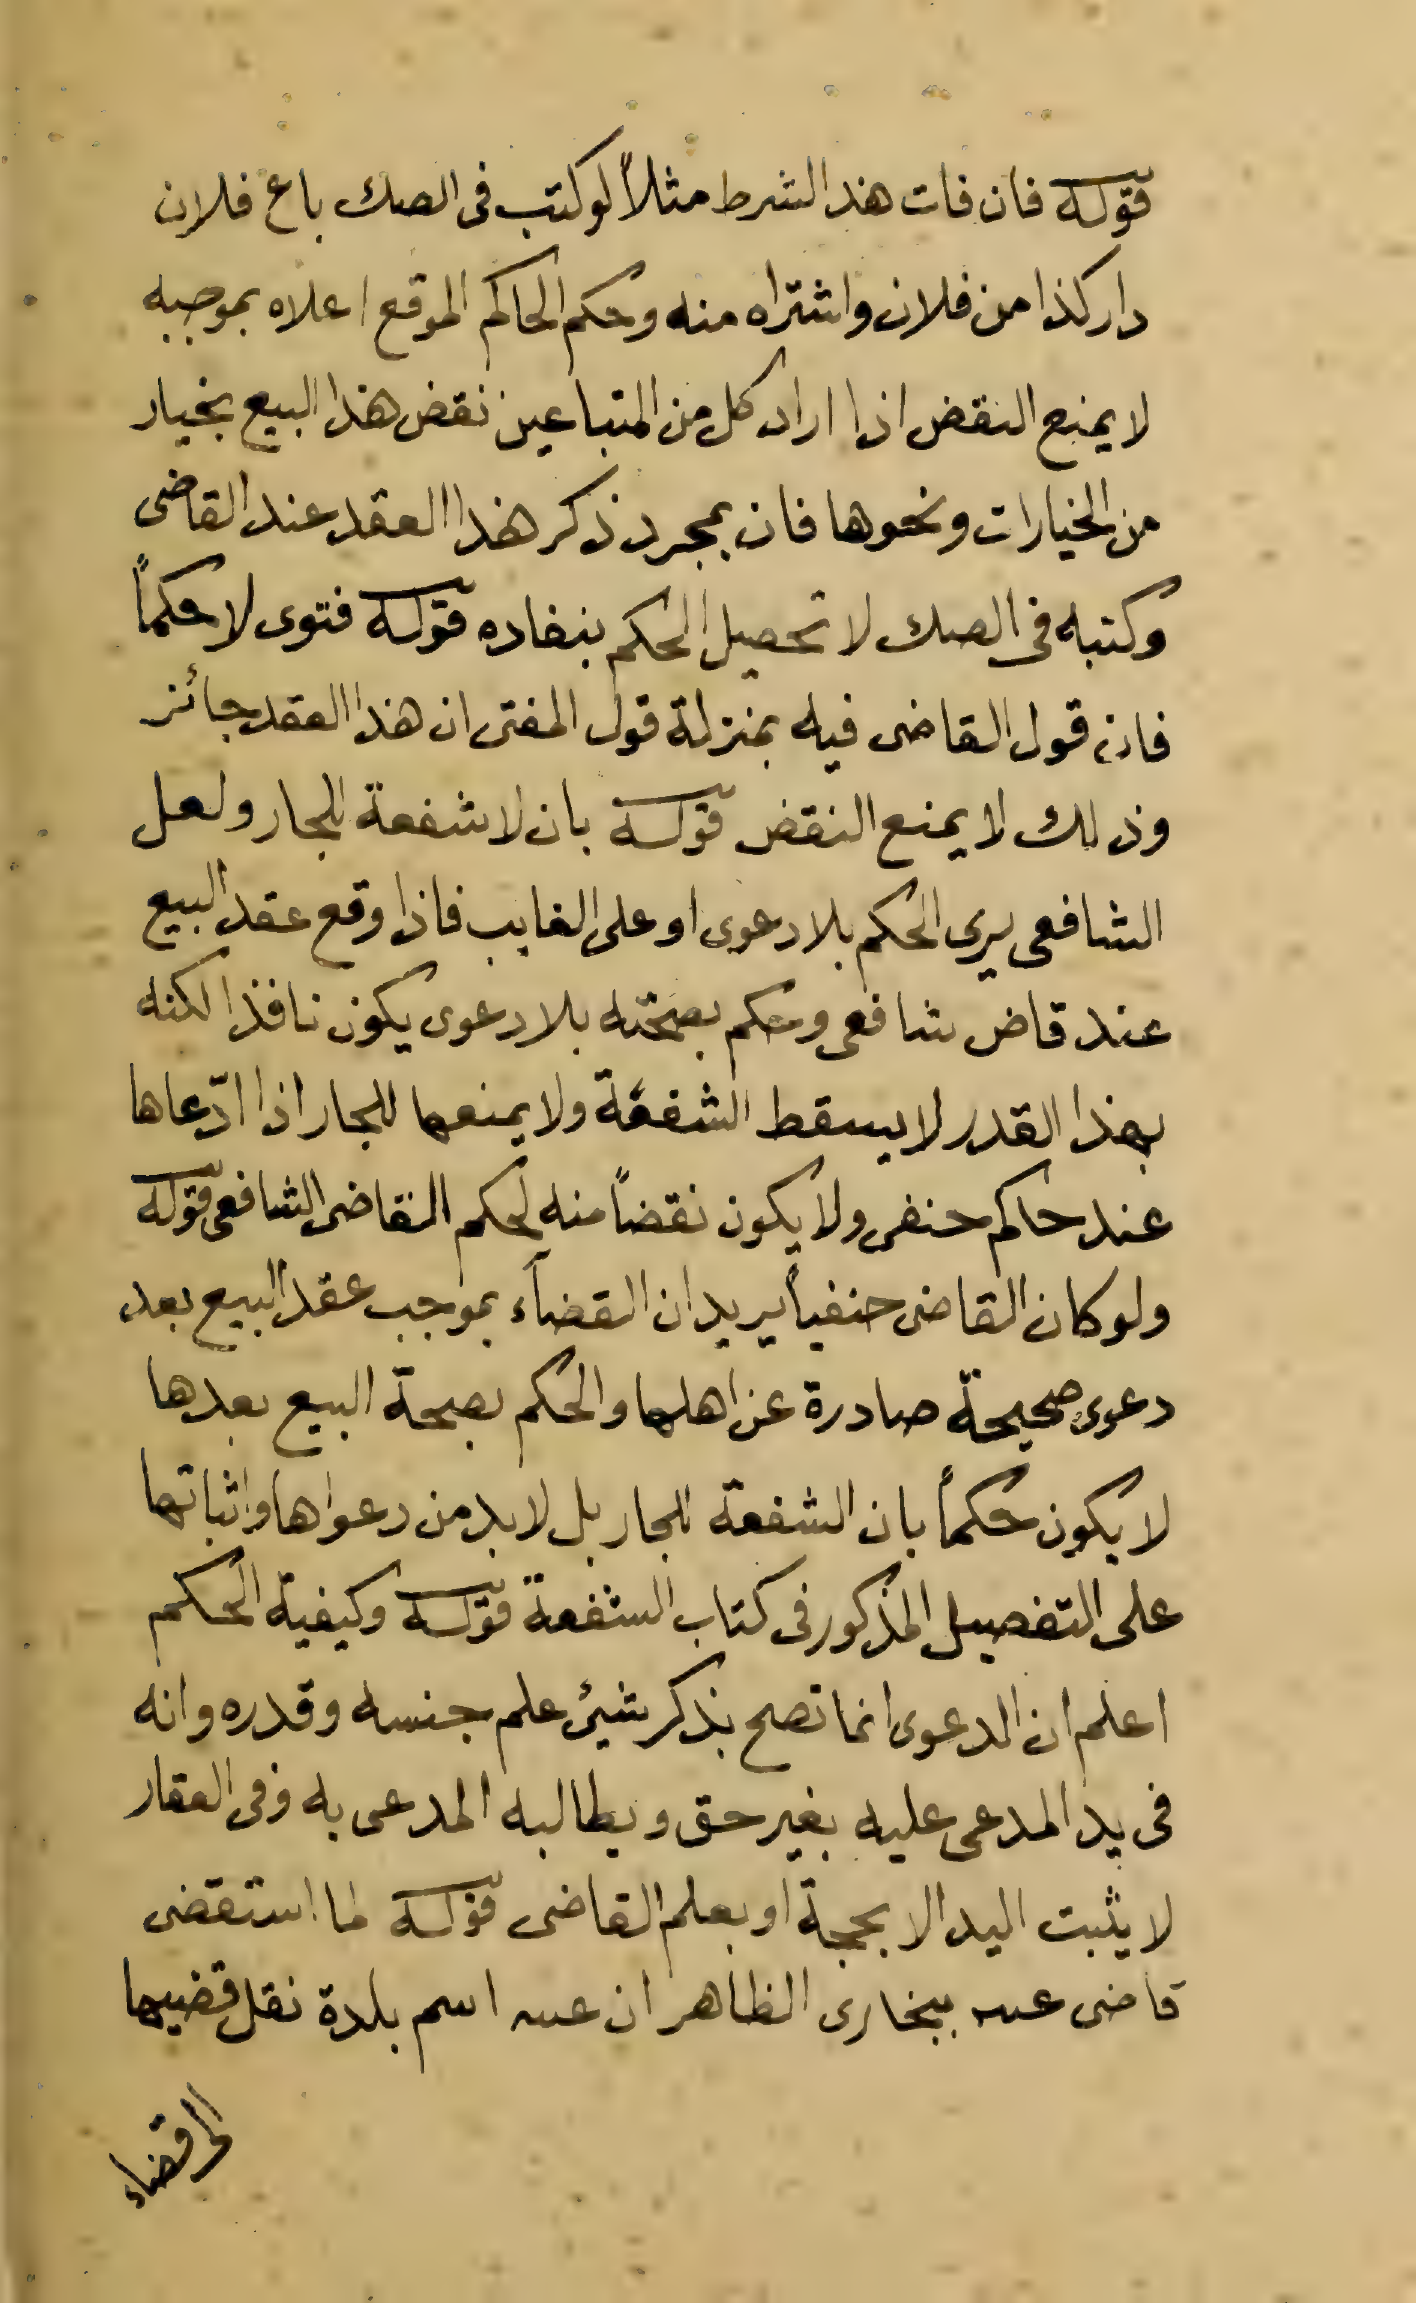 قوله فان فات هذا الشرط مثلاً لو كتب فى الصك باع فلان
دار كذا من فلان واشتراه منه وحكم الحاكم الموقع اعلاه بموجبه
لا يمنع النقض اذا اراد كل من المتباعين نقض هذا البيع بخيار
من الخيارات ونحوها فان بمجرد ذكر هذا العقد عند القاضى
وكتبه فى الصك لا تحصيل الحكم بنفاده قوله فتوى لا حكماً
فان قول القاضى فيه بمنزلة قول المفتى ان هذا العقد جائز
وذلك لا يمنع النقض قوله بان لا شفعة للجار ولعل
الشافعى يرى الحكم بلا دعوى او على الغايب فاذا وقع عقد البيع
عند قاض شافعى وحكم بصحته بلا دعوى يكون نافذا لكنه
بهذا القدر لا يسقط الشفعة ولا يمنعها للجار اذا ادّعاها
عند حاكم حنفى ولا يكون نقضاً منه لحكم القاضى الشافعى قوله
ولو كان القاضى حنفياً يريد ان القضآء بموجب عقد البيع بعد
دعوى صحيحة صادرة عن اهلها والحكم بصحة البيع بعدها
لا يكون حكماً بان الشفعة للجار بل لابد من دعواها واثباتها
على التفصيل المذكور فى كتاب الشفعة قوله وكيفية الحكم
اعلم ان الدعوى انما تصح بذكر شيئ علم جنسه وقدره وانه
فى يد المدعى عليه بغير حق ويطالبه المدعى به وفى العقار
لا يثبت اليد الا بحجة او بعلم القاضى قوله لما استقضى
قاضى ببخارى الظاهر ان اسم بلدة نقل قضيها
الى قضاء